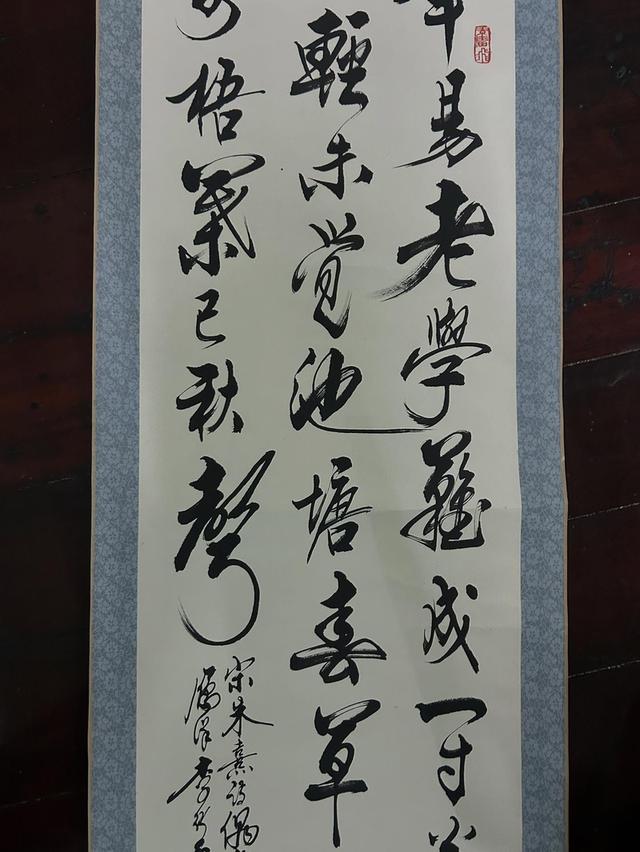 年易老學難成一寸光
輕未覺池塘春草
梧葉已秋聲
宋朱熹詩偶